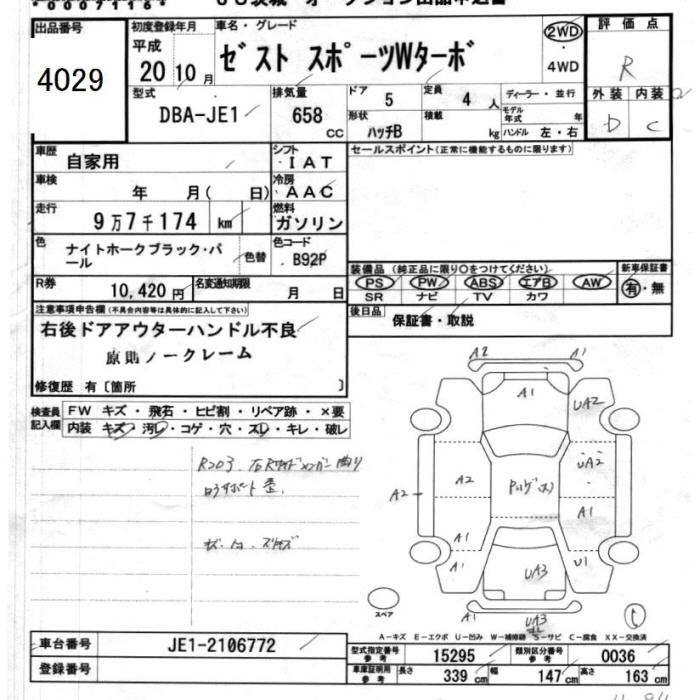 *00071116*
出品番号
4029
初度登録年月
平成
20 10月
車名・グレード
ゼスト スポーツWターボ
2WD
・
4WD
評価点
R
外装 内装
D C
型式
DBA-JE1
排気量
658
CC
ドア
5
定員
4 人
形状
ハッチB
積載
kg
ディーラー・並行
モデル年式 年
ハンドル 左・右
車歴
自家用
シフト
IAT
車検
年 月( 日)
冷房
AAC
走行
9万7千174 km
燃料
ガソリン
色
ナイトホークブラック・パール
色替
色コード
B92P
R券
10,420円
名変通知期限
月 日
セールスポイント(正常に機能するものに限ります)
装備品 (純正品に限り○をつけてください)
PS PW ABS エアB AW
SR ナビ TV カワ
新車保証書
有・無
後日品
保証書・取説
注意事項申告欄(不具合内容等は具体的に記入して下さい)
右後ドアアウターハンドル不良
原則ノークレーム
修復歴 有〔箇所 〕
検査員記入欄
FW キズ・飛石・ヒビ割・リペア跡・×要
内装 キズ・汚レ・コゲ・穴・スレ・キレ・破レ
A2 A1
A1
UA2
A2
A2
UA2
A1
A1
A1
U1
UA3
A1
UA3
スペア
A-キズ E-エクボ U-凹み W-補修跡 S-サビ C-腐食 XX-交換済
車台番号
JE1-2106772
登録番号
型式指定番号
参考
15295
類別区分番号
参考
0036
車庫証明用
参考
長さ
339 cm
幅
147 cm
高さ
163 cm